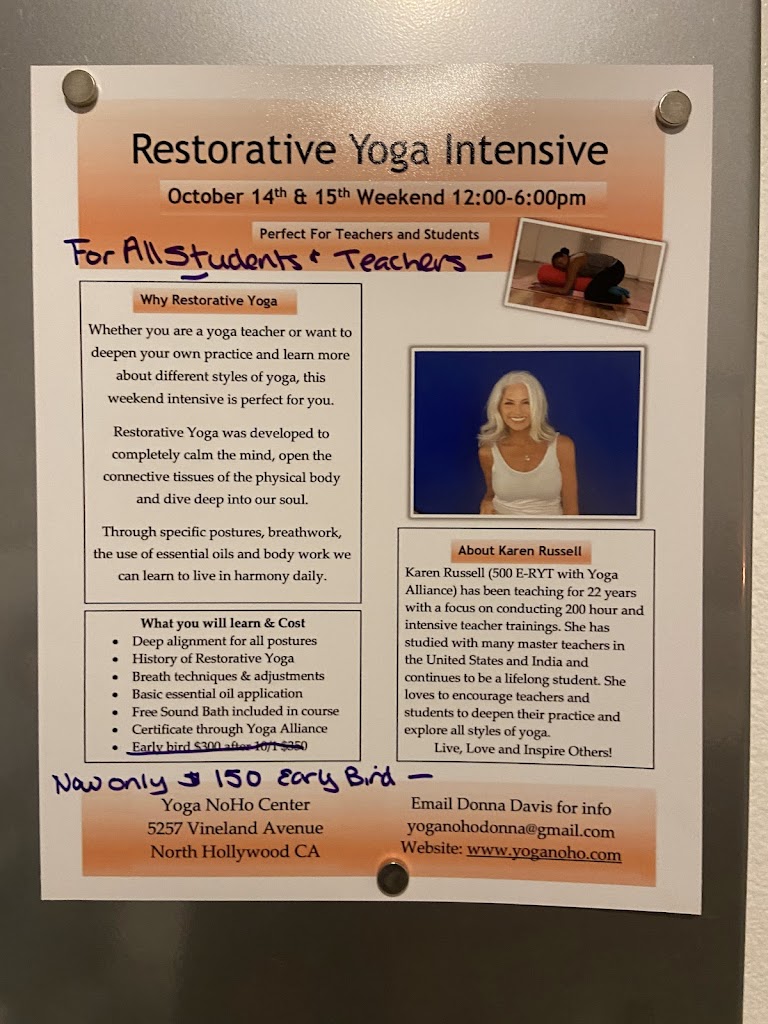 Restorative Yoga Intensive
October 14th & 15th Weekend 12:00-6:00pm
Perfect For Teachers and Students
For All Students & Teachers -
Why Restorative Yoga
Whether you are a yoga teacher or want to
deepen your own practice and learn more
about different styles of yoga, this
weekend intensive is perfect for you.
Restorative Yoga was developed to
completely calm the mind, open the
connective tissues of the physical body
and dive deep into our soul.
Through specific postures, breathwork,
the use of essential oils and body work we
can learn to live in harmony daily.
What you will learn & Cost
• Deep alignment for all postures
• History of Restorative Yoga
• Breath techniques & adjustments
• Basic essential oil application
• Free Sound Bath included in course
• Certificate through Yoga Alliance
• Early bird $300 after 10/1 $350
About Karen Russell
Karen Russell (500 E-RYT with Yoga
Alliance) has been teaching for 22 years
with a focus on conducting 200 hour and
intensive teacher trainings. She has
studied with many master teachers in
the United States and India and
continues to be a lifelong student. She
loves to encourage teachers and
students to deepen their practice and
explore all styles of yoga.
Live, Love and Inspire Others!
Now only $ 150 Early Bird -
Yoga NoHo Center
5257 Vineland Avenue
North Hollywood CA
Email Donna Davis for info
yoganohodonna@gmail.com
Website: www.yoganoho.com